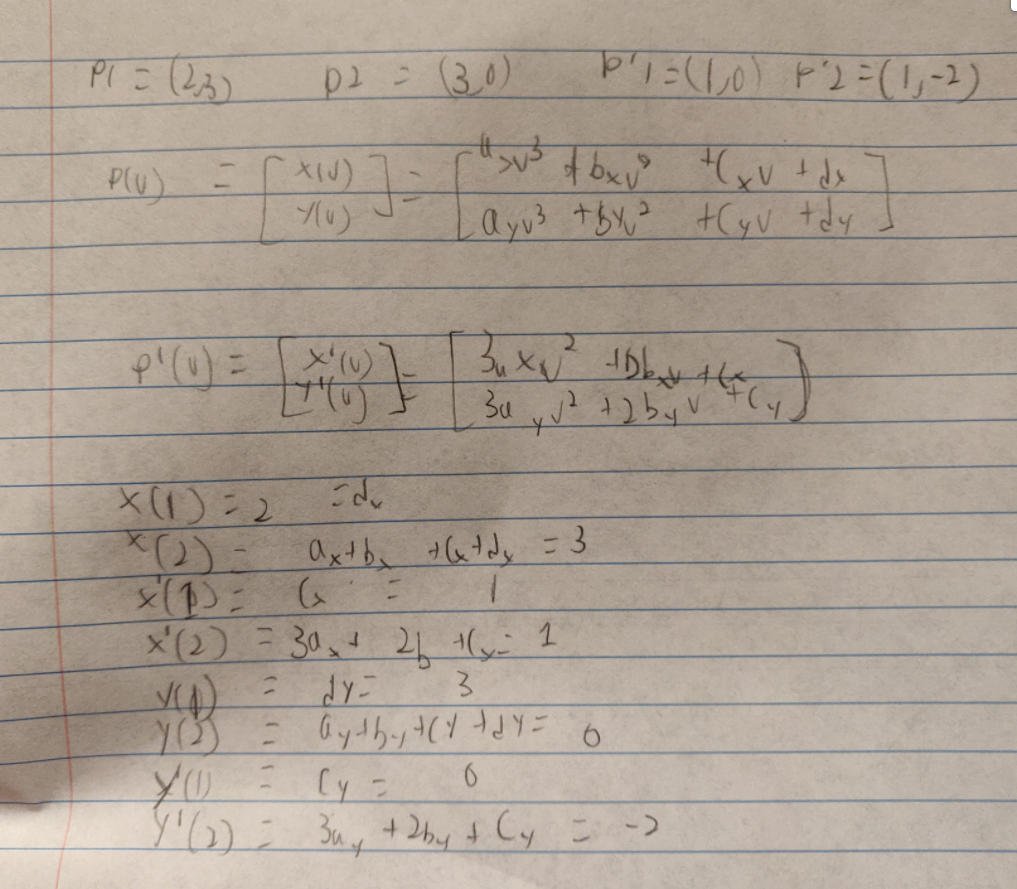 P1 = (2,3) P2 = (3,0) P'1 = (1,0) P'2 = (1,-2)
P(u) = [x(u)] = [axu³ + bxu² + cxu + dx]
[y(u)] [ayu³ + byu² + cyu + dy]
P'(u) = [x'(u)] = [3axu² + bxu + cx]
[y'(u)] [3ayu² + 2byu + cy]
x(1) = 2 = dx
x(2) = ax + bx + cx + dx = 3
x'(1) = cx = 1
x'(2) = 3ax + 2b + cx = 1
y(1) = dy = 3
y(2) = ay + by + cy + dy = 0
y'(1) = cy = 0
y'(2) = 3ay + 2by + cy = -2